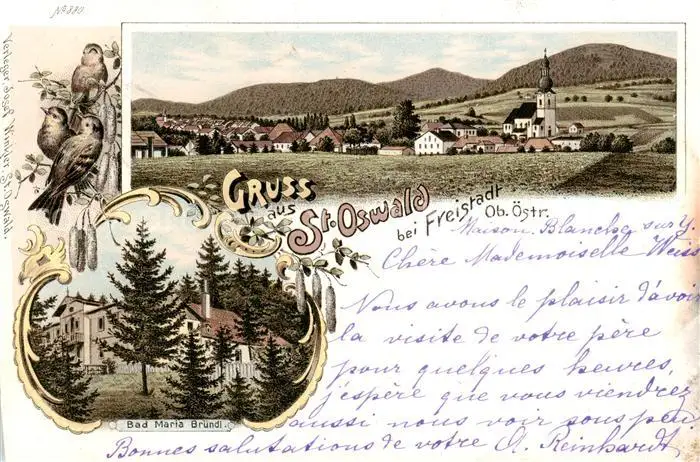 No 390
Verleger: Josef Winkler, St. Oswald.
Gruss
aus
St. Oswald
bei Freistadt
Ob. Östr.
Maison Blanche sur Y.
Chère Mademoiselle Weiss
Nous avons le plaisir d'avoir
la visite de votre père
pour quelques heures,
j'espère que vous viendrez
aussi nous voir sous peu
Bonnes salutations de votre A. Reinhardt
Bad Maria Bründl.